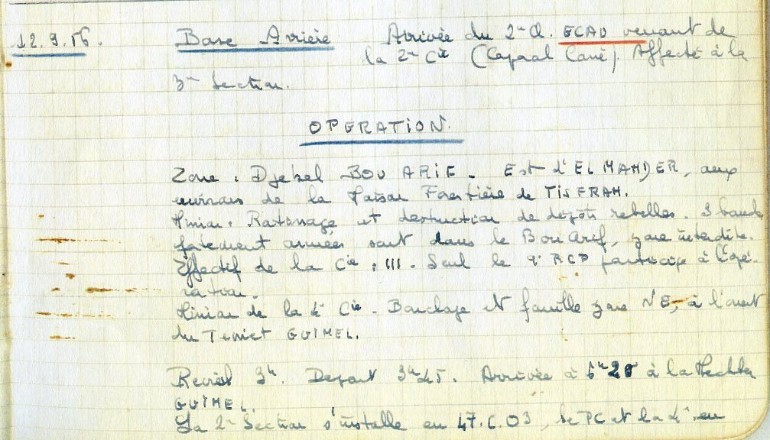 12.9.56. Base Arrière Arrivée du 2me Cl. ECAU venant de
la 2me Cie (Caporal Carré). Affecté à la
3me Section.
OPERATION.
Zone : Djebel BOU ARIF. Est d'EL MAHDER, aux
environs de la Maison Forestière de TISERAH.
Mission : Ratissage et destruction de dépôts rebelles. 3 bandes
fortement armées sont dans le Bou Arif, zone interdite.
Effectif de la Cie : 111. Seul le RCP participe à l'opé-
ration.
Mission de la Cie. Bouclage et fouille zone NE, à l'ouest
du Teniet GUIMEL.
Réveil 3h. Depart 3h45. Arrivée à à la Mechta
GUIMEL.
La 2me Section s'installe en 47.C.03, le PC et la 4e en